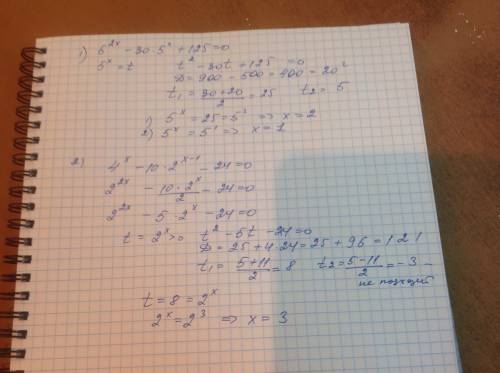 1) 5^{2x} - 30·5^x + 125 = 0
5^x = t   t^2 - 30t + 125 = 0
D = 900 - 500 = 400 = 20^2
t_1 = \frac{30+20}{2} = 25   t_2 = 5
1) 5^x = 25 = 5^2 => x = 2
2) 5^x = 5^1 => x = 1
2) 4^x - 10·2^{x-1} - 24 = 0
2^{2x} - \frac{10·2^x}{2} - 24 = 0
2^{2x} - 5·2^x - 24 = 0
t = 2^x > 0   t^2 - 5t - 24 = 0
D = 25 + 4·24 = 25 + 96 = 121
t_1 = \frac{5+11}{2} = 8   t_2 = \frac{5-11}{2} = -3 -
не подходит
t = 8 = 2^x
2^x = 2^3 => x = 3